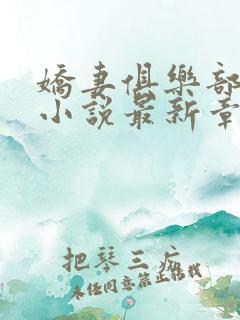 嬌妻俱樂部
小說最新章
把琴三疝
未經同意禁止轉載